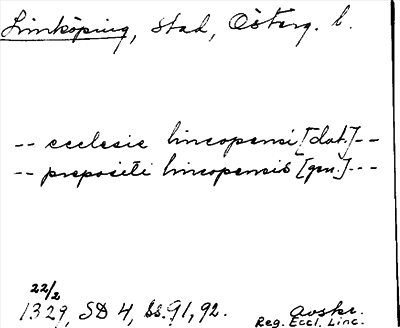 Linköping, stad, Österg. l.
-- ecclesie lincopensi [dat.] --
-- prepositi lincopensis [gen.] ---
22/2
1329, SD 4, ss. 91, 92. Avskr.
Reg. Eccl. Linc.